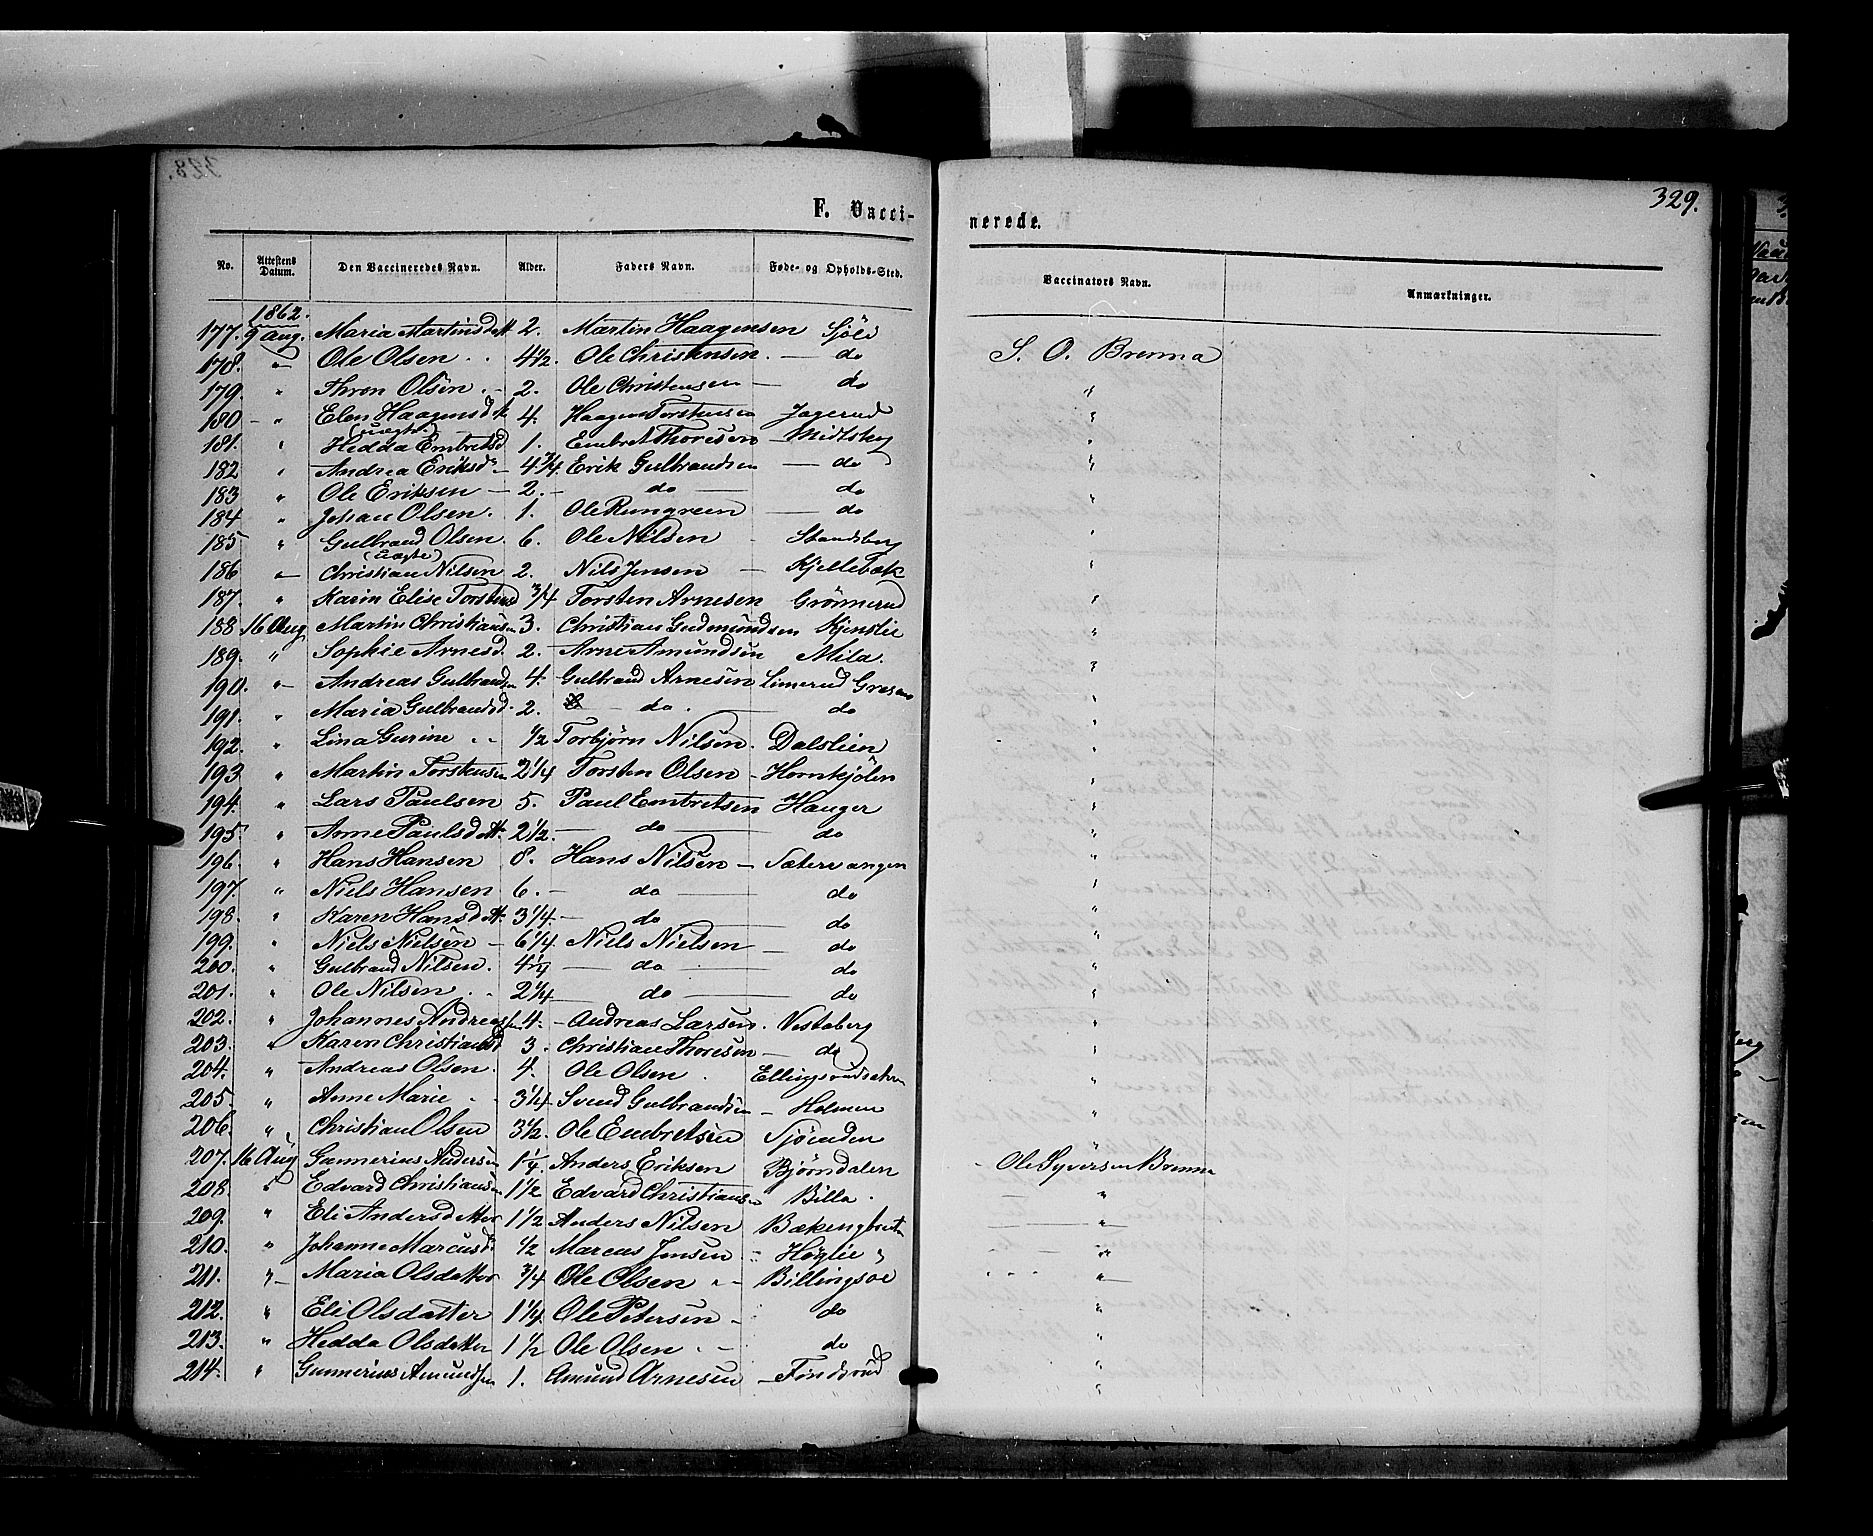 329.
F. Vacci-
nerede.
No. Attestens Datum. Den Vaccineredes Navn. Alder. Faders Navn. Føde- og Opholds-Sted. Vaccinators Navn. Anmærkninger.
1862.
177. 9 Aug. Maria Martinsdtt 2. Martin Haagensen Sjöli
178. " Ole Olsen 4 1/2. Ole Christensen do S. O. Brenna
179. " Thron Olsen 2. Ole Christensen do "
180 " Elen Haagensd 4. Haagen Torstensen Jagerud "
(uægte)
181. " Hedda Embretsd 1. Embret Thoresen Midtskog "
182 " Andrea Eriksd 4 3/4. Erik Gulbrandsen do "
183 " Ole Eriksen 2. do do "
184 " Johan Olsen 1. Ole Rungreen do
185 " Gulbrand Olsen 6. Ole Nilsen "
(uægte)
186 " Christian Nilsen 2. Nils Jensen Kjellebæk "
187. " Karin Elise Torstensd 3/4 Torsten Arnesen Grönnerud "
188 16 Aug Martin Christiansen 3. Christian Gudmundsen Kjenslie "
189. " Sophie Arnesd. 2. Arne Amundsen Mila. "
190. " Andreas Gulbrandsen 4. Gulbrand Arnesen "
191. " Maria Gulbrandsd. 2. do. do "
192. " Lina Gurine 1/2 Torbjørn Nilsen. Dalslien "
193 " Martin Torstensen 2 1/4 Torsten Olsen Hornkjölen "
194. " Lars Paulsen 5. Paul Embretsen Hauger "
195. " Anne Paulsdtt. 2 1/2. do do "
196. " Hans Hansen 8. Hans Nilsen Sætervangen "
197. " Niels Hansen 6. do do "
198. " Karen Hansdtt. 3 1/4. do do "
199. " Niels Nielsen 6 1/4. Niels Nielsen do "
200. " Gulbrand Nilsen. do do "
201. " Ole Nilsen 2 1/4 do do "
202. " Johannes Andreassen 4. Andreas Larsen. Vestaberg "
203. " Karen Christiansd 3. Christian Thoresen do "
204. " Andreas Olsen. 4. Ole Olsen Ellingsrudsætern "
205. " Anne Marie 3 1/4 Svend Gulbrandsen Holmen "
206. " Christian Olsen 3 1/2. Ole Embretsen Sjöenden
207. 16 Aug Gunnerius Andersen 1 1/4. Anders Eriksen Bjørndalen Ole Syversen Brenna
208. " Edvard Christiansen 1 1/2 Edvard Christiansen Billa. "
209. " Eli Andersdatter 1 1/2 Anders Nilsen "
210. " Johanne Marcusd 1/2 Marcus Jensen Höglie "
211. " Maria Olsdatter 3/4 Ole Olsen Billingsoe "
212. " Eli Olsdatter 1 1/4 Ole Petersen do "
213. " Hedda Olsdatter 1 1/2 Ole Olsen do "
214. " Gunnerius Amundsen 1. Amund Arnesen Findsrud "